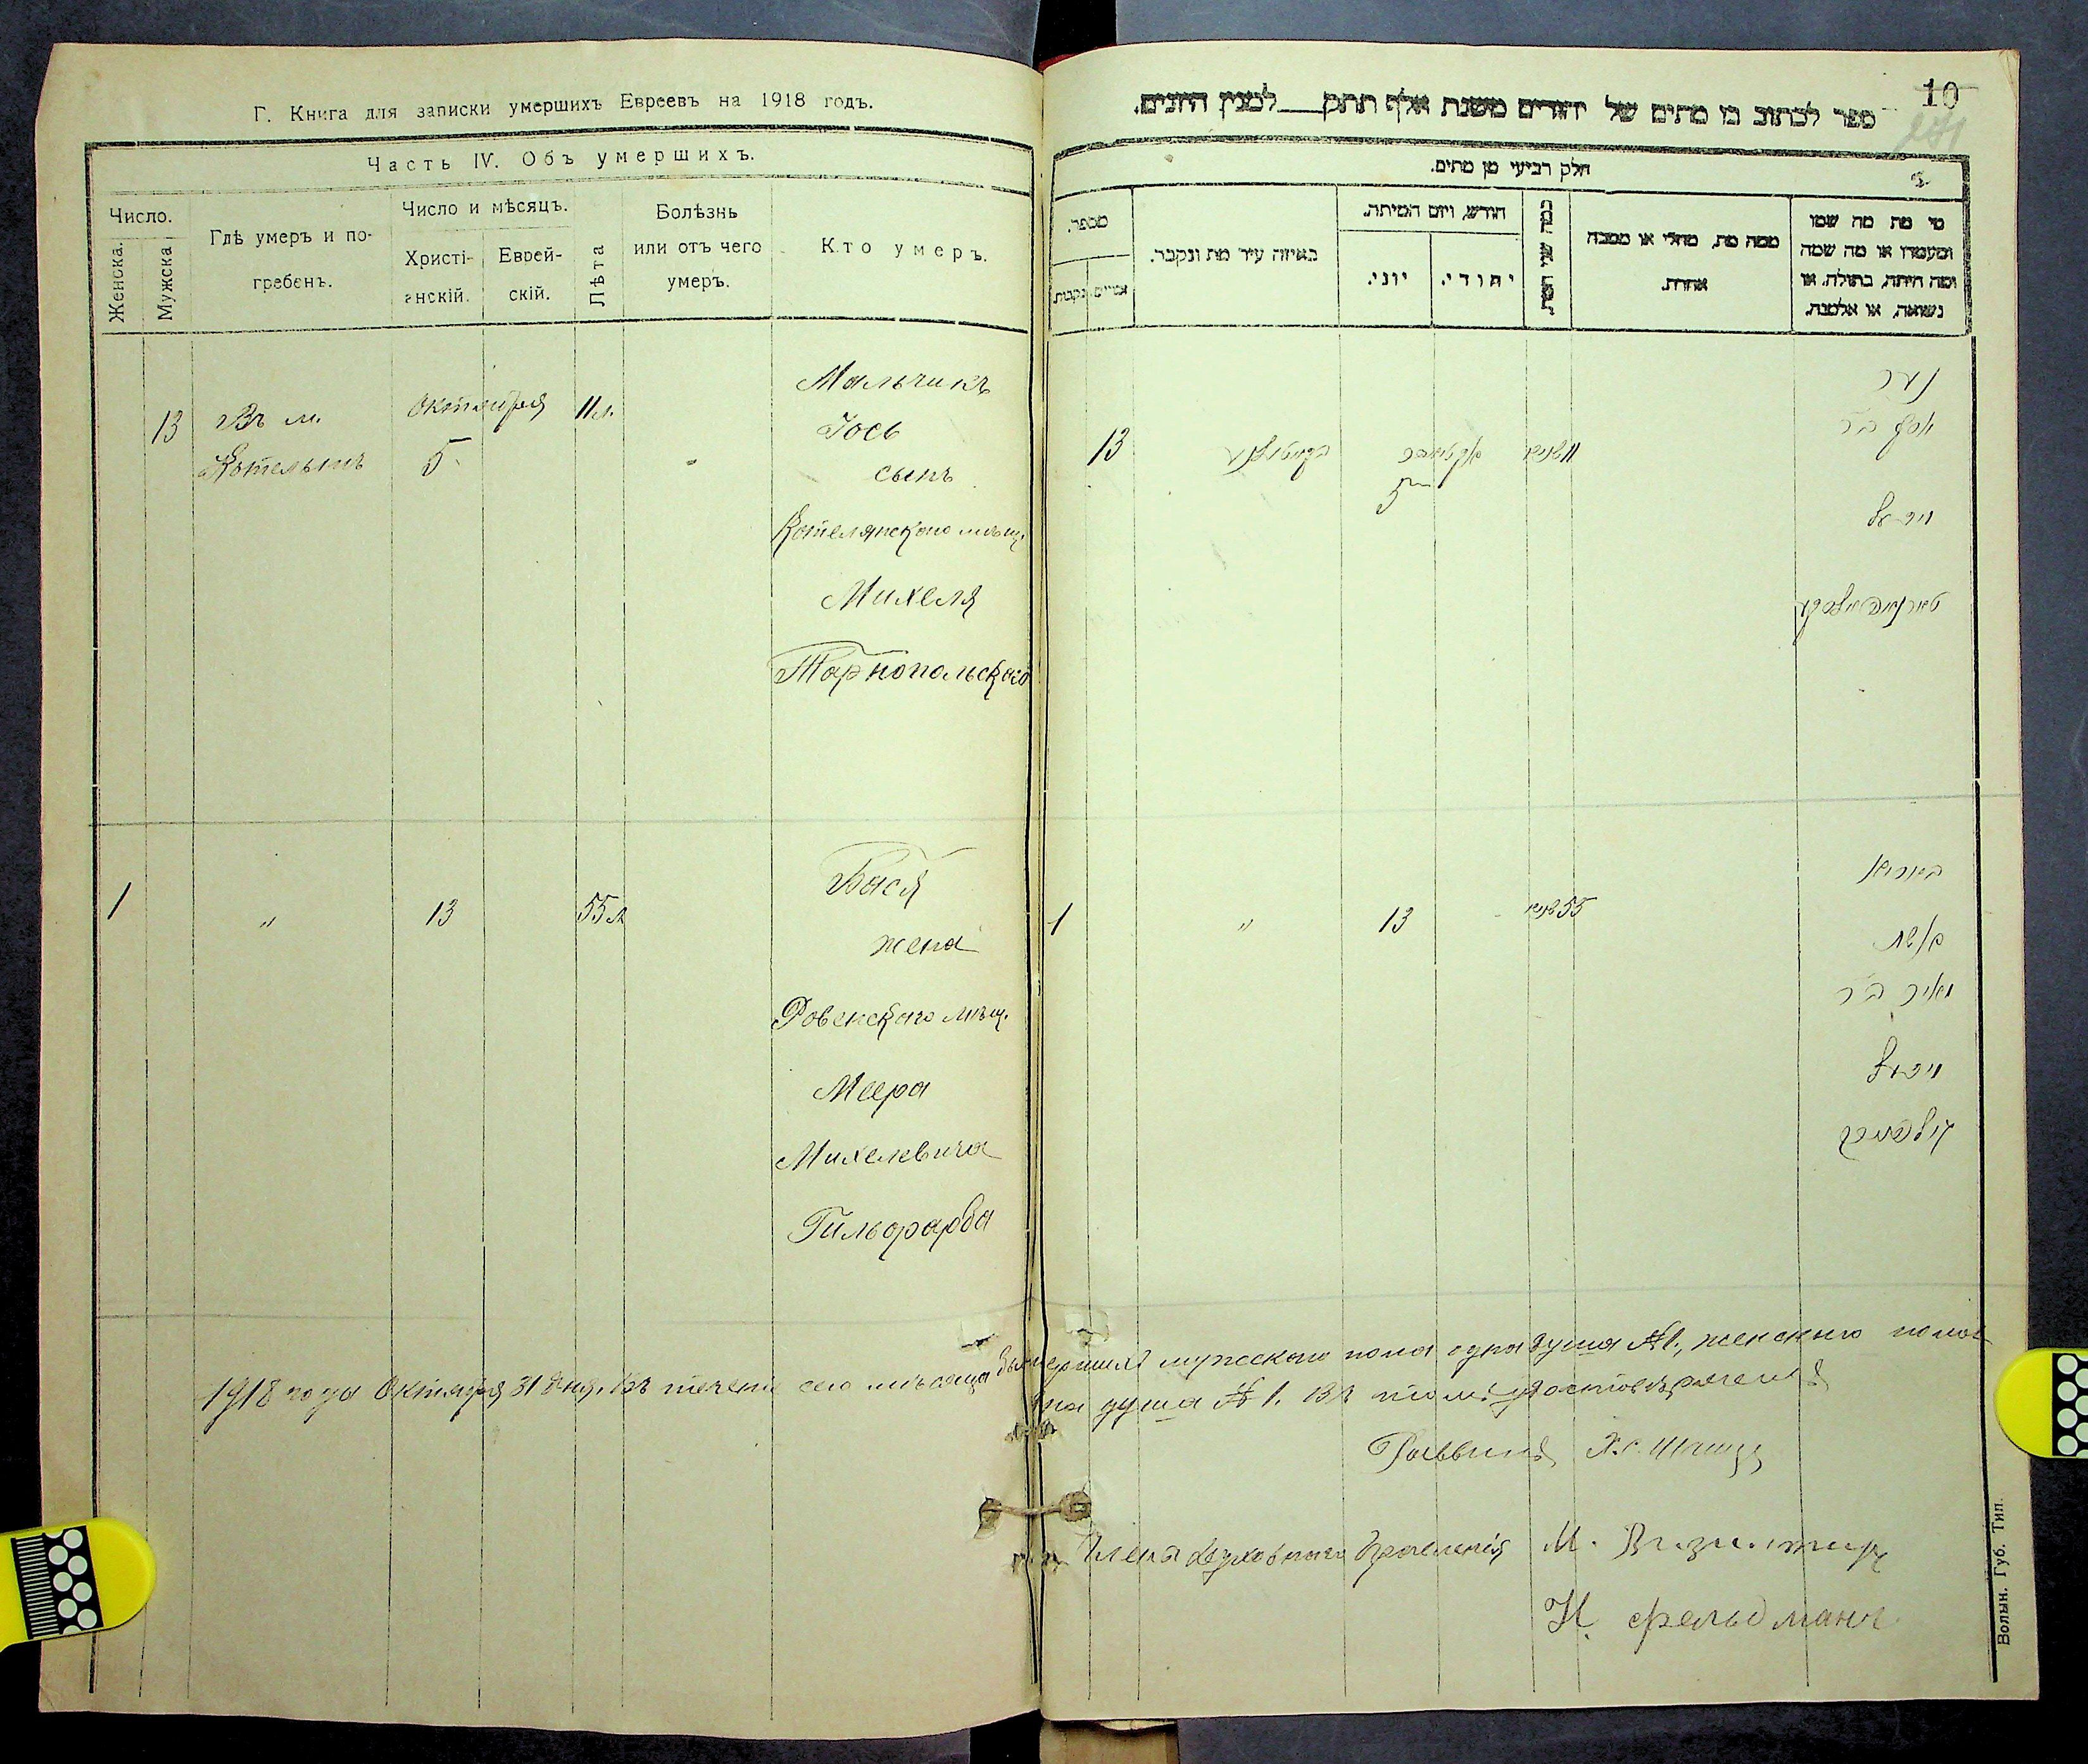 Г. Книга для записки умершихъ Евреевъ на 1918 годъ.
Часть IV. Объ умершихъ.
Число.
Женска.
Мужска
Гдѣ умеръ и по-
гребенъ.
Число и мѣсяцъ.
Христі-
анскій.
Еврей-
скій.
Лѣта
Болѣзнь
или отъ чего
умеръ.
Кто умеръ.
13
Въ м.
Котельнъ
Октября
5
11 л.
Мальчикъ
Іось
сынъ
Котелянскаго мѣщ.
Михеля
Тарнопольскаго
1
"
13
55 л
Бася
жена
Ровенскаго мѣщ.
Меера
Михелевича
Гильфарба
10
ספר לכתוב בו מתים של יהודים משנת אלף תתק למנין היונים.
חלק רביעי מן מתים.
מספר.
נקבות.
באיזה עיר מת ונקבר.
חודש, ויום המיתה.
יוני.
יהודי.
כמה שני המת
ממה מת, מחלי או מסבה
אחרת.
מי מת מה שמו
ומעמדו או מה שמה
ומה היתה, בתולה, או
נשואה, או אלמנה.
13
אקטיאבר
5
11 שנים
נער
יוסף ב"ר
מיכאל
טארנאפאלסקי
1
"
13
55 שנים
באסיא
אשת
מאיר ב"ר
מיכאל
גילפארב
1918 года Октября 31 дня. Въ теченіи сего мѣсяца умершихъ мужскаго пола одна душа №1, женскаго пола
одна душа № 1. Въ томъ удостовѣряемъ
Раввинъ
Члена духовнаго Правленія М.
Н. Фельдманъ
Волын. Губ. Тип.